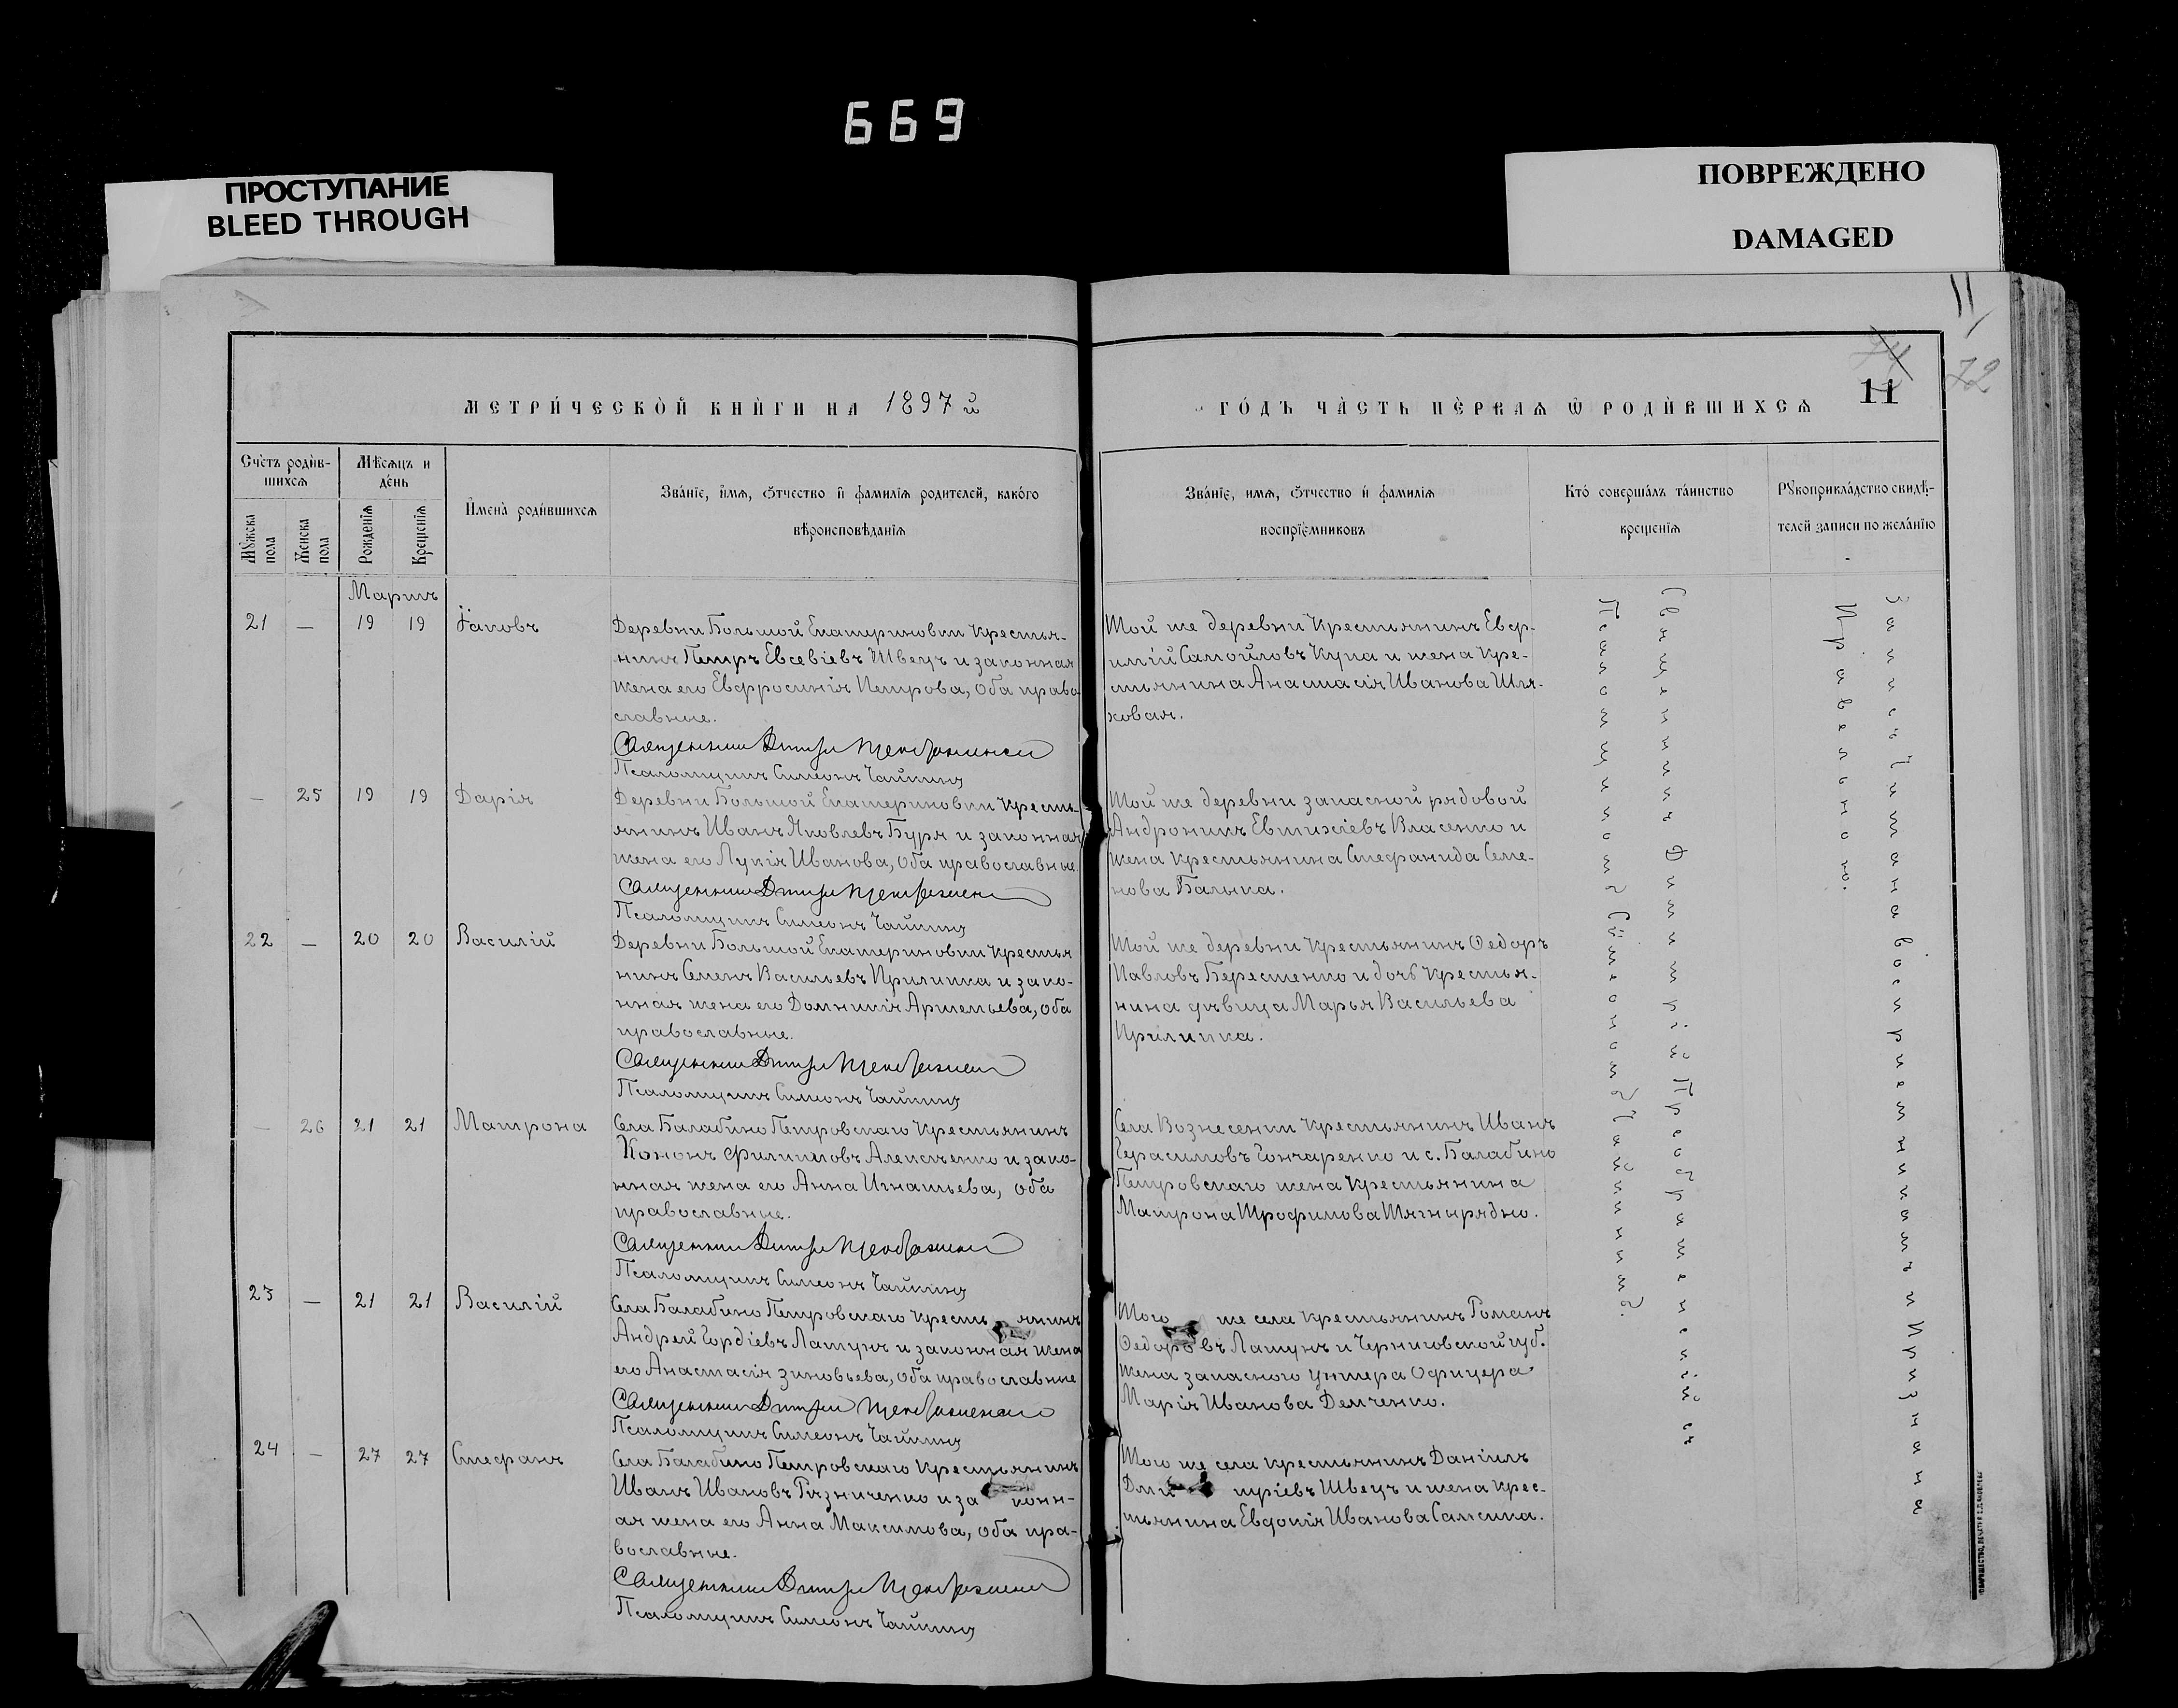 669
ПРОСТУПАНИЕ
BLEED THROUGH
ПОВРЕЖДЕНО
DAMAGED
11
72
МЕТРИ́ЧЕСКОЙ КНИ́ГИ НА 1897 й
ГО́ДЪ ЧА́СТЬ ПЕ́РВАѦ Ѿ РОДИ́ВШИХСѦ
11
Сче́тъ роди́в-
шихсѧ
Мѣ́сѧцъ и
де́нь
Мꙋ́жска
пола
Же́нска
пола
Рожденїѧ
Крещенїѧ
И҆мена̀ роди́вшихсѧ
Зва́нїе, и҆́мѧ, ѻ҆́тчество и҆ фамилїѧ родителей, како́го
вѣроисповѣданїѧ
Зва́нїе, имѧ, ѻ҆́тчество и҆ фамилїѧ
воспрїе́мниковъ
Кто́ соверша́лъ та́инство
крещенїѧ
Рꙋкоприкла́дство свидѣ́-
телей записи по жела́нїю
Мартъ
21 — 19 19 Іаковъ
Деревни Большой Екатериновки крестья-
нинъ Петръ Евсевіевъ Швецъ и законная
жена его Евфросинія Петрова, оба право
славные.
Священникъ Димитрій Преображенскій
Псаломщикъ Симеонъ Чайкинъ
Той же деревни крестьянинъ Евф-
имій Самойловъ Купа и жена кре-
стьянина Анастасія Иванова Шля-
ховая.
— 25 19 19 Дарія
Деревни Большой Екатериновки кресть-
янинъ Иванъ Яковлевъ Буря и законная
жена его Лукія Иванова, оба православные.
Священникъ Димитрій Преображенскій
Псаломщикъ Симеонъ Чайкинъ
Той же деревни запасной рядовой
Андроникъ Евтихіевъ Власенко и
жена крестьянина Стефанида Семе-
нова Балыка.
22 — 20 20 Василій
Деревни Большой Екатериновки крестья
нинъ Семенъ Васильевъ Прилипка и зако-
нная жена его Домникія Артемьева, оба
православные.
Священникъ Димитрій Преображенскій
Псаломщикъ Симеонъ Чайкинъ
Той же деревни крестьянинъ Ѳедоръ
Павловъ Берестенко и дочь крестья-
нина дѣвица Марья Васильева
Прилипка.
— 26 21 21 Матрона
Села Балабино Петровскаго крестьянинъ
Кононъ Филипповъ Алексѣенко и зако-
нная жена его Анна Игнатьева, оба
православные.
Священникъ Димитрій Преображенскій
Псаломщикъ Симеонъ Чайкинъ
Села Вознесенки крестьянинъ Иванъ
Герасимовъ Гончаренко и с. Балабино
Петровскаго жена крестьянина
Матрона Трофимова Тягнирядно.
23 — 21 21 Василій
Села Балабино Петровскаго кресть янинъ
Андрей Гордіевъ Латунъ и законная жена
его Анастасія Зиновьева, оба православные
Священникъ Димитрій Преображенскій
Псаломщикъ Симеонъ Чайкинъ
Того же села крестьянинъ Романъ
Ѳедоровъ Латунъ и Черниговской губ.
жена запасного унтера Офицера
Марія Иванова Демченко.
24 — 27 27 Стефанъ
Села Балабино Петровскаго крестьянинъ
Иванъ Ивановъ Рѣзниченко и за конн-
ая жена его Анна Максимова, оба пра-
вославные.
Священникъ Димитрій Преображенскій
Псаломщикъ Симеонъ Чайкинъ
Того же села крестьянинъ Даніилъ
Дми тріевъ Швецъ и жена крес-
тьянина Евдокія Иванова Самсика.
Священникъ Димитрій Преображенскій съ
Псаломщикомъ Симеономъ Чайкинымъ.
Запись читана воспріемникамъ и Признана
Правильною.